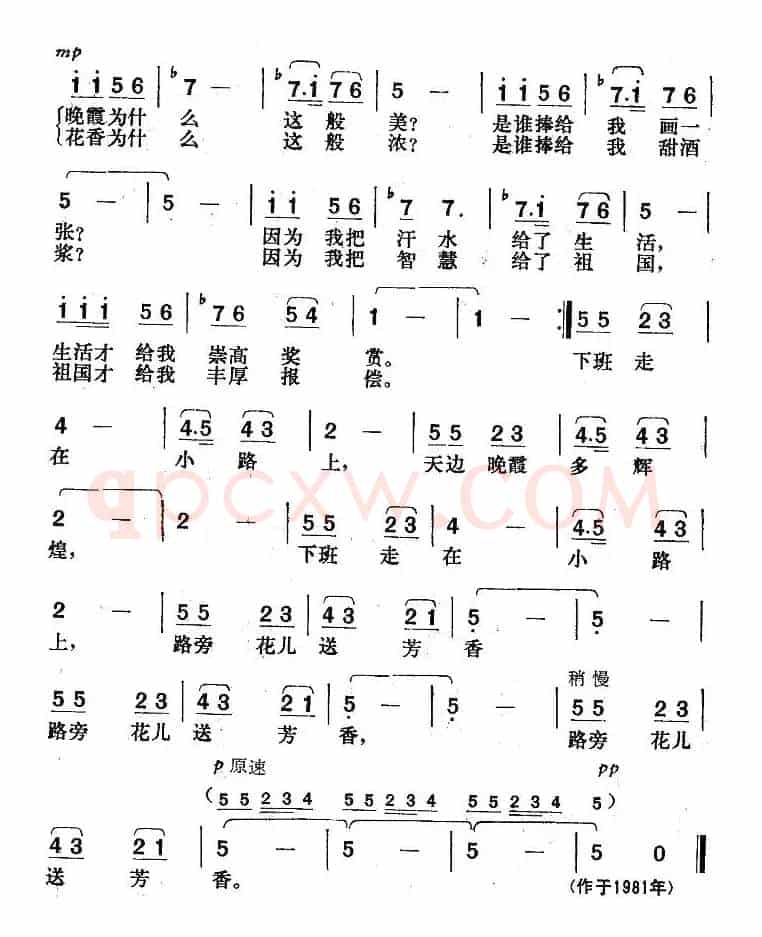 mp
i i 5 6 | ♭7 — | ♭7.i 7 6 | 5 — | i i 5 6 | ♭7.i 7 6 |
晚霞为什 么 这 般 美? 是谁捧给 我 画一
花香为什 么 这 般 浓? 是谁捧给 我 甜酒
5 — | 5 — | i i 5 6 | ♭7 7. | ♭7.i 7 6 | 5 — |
张? 因为我把 汗 水 给了 生 活,
浆? 因为我把 智 慧 给了 祖 国,
i i i 5 6 | ♭7 6 5 4 | 1 — | 1 — :‖ 5 5 2 3 |
生活才 给我 崇高 奖 赏。 下班 走
祖国才 给我 丰厚 报 偿。
4 — | 4.5 4 3 | 2 — | 5 5 2 3 | 4.5 4 3 |
在 小 路 上, 天边 晚霞 多 辉
qpcxw.COM
2 — | 2 — | 5 5 2 3 | 4 — | 4.5 4 3 |
煌, 下班 走 在 小 路
2 — | 5 5 2 3 | 4 3 2 1 | 5 — | 5 — |
上, 路旁 花儿 送 芳 香
稍 慢
5 5 2 3 | 4 3 2 1 | 5 — | 5 — | 5 5 2 3 |
路旁 花儿 送 芳 香, 路旁 花儿
p 原速 pp
(5 5 2 3 4 5 5 2 3 4 5 5 2 3 4 5)
4 3 2 1 | 5 — | 5 — | 5 — | 5 0 ‖
送 芳 香。 (作于1981年)